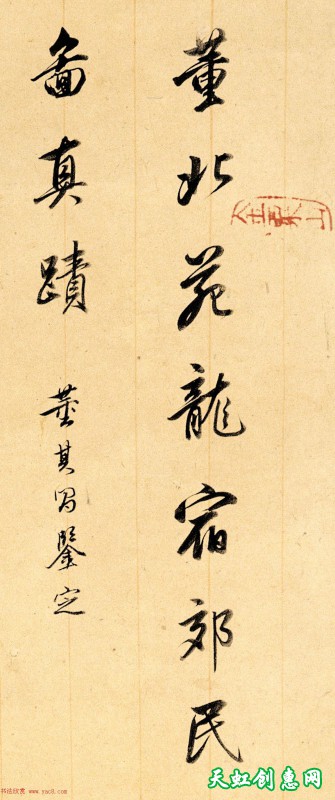 董北苑龍宿郊民
圖真蹟
董其昌鑒定
书法欣赏 www.yac8.com
天虹创惠网